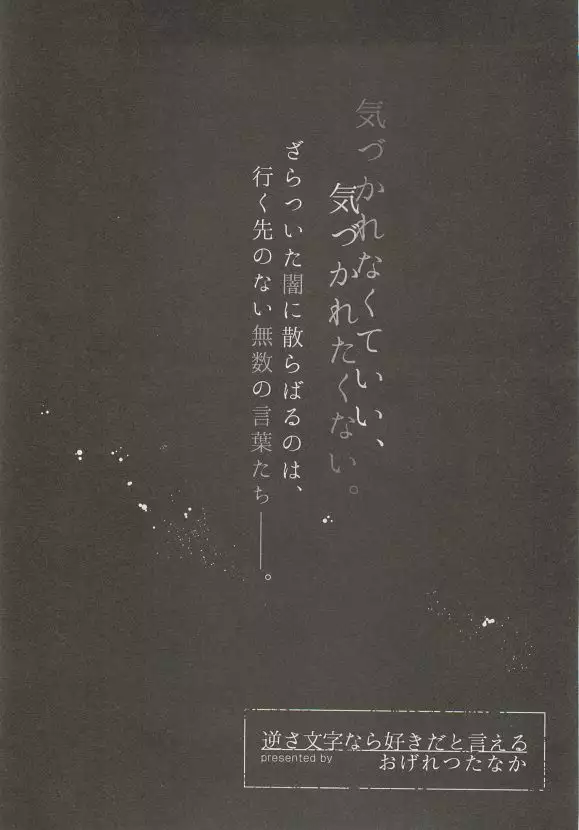 気づかれなくていい、
気づかれたくない。
ざらついた闇に散らばるのは、
行く先のない無数の言葉たち――。
逆さ文字なら好きだと言える
presented by おげれつたなか